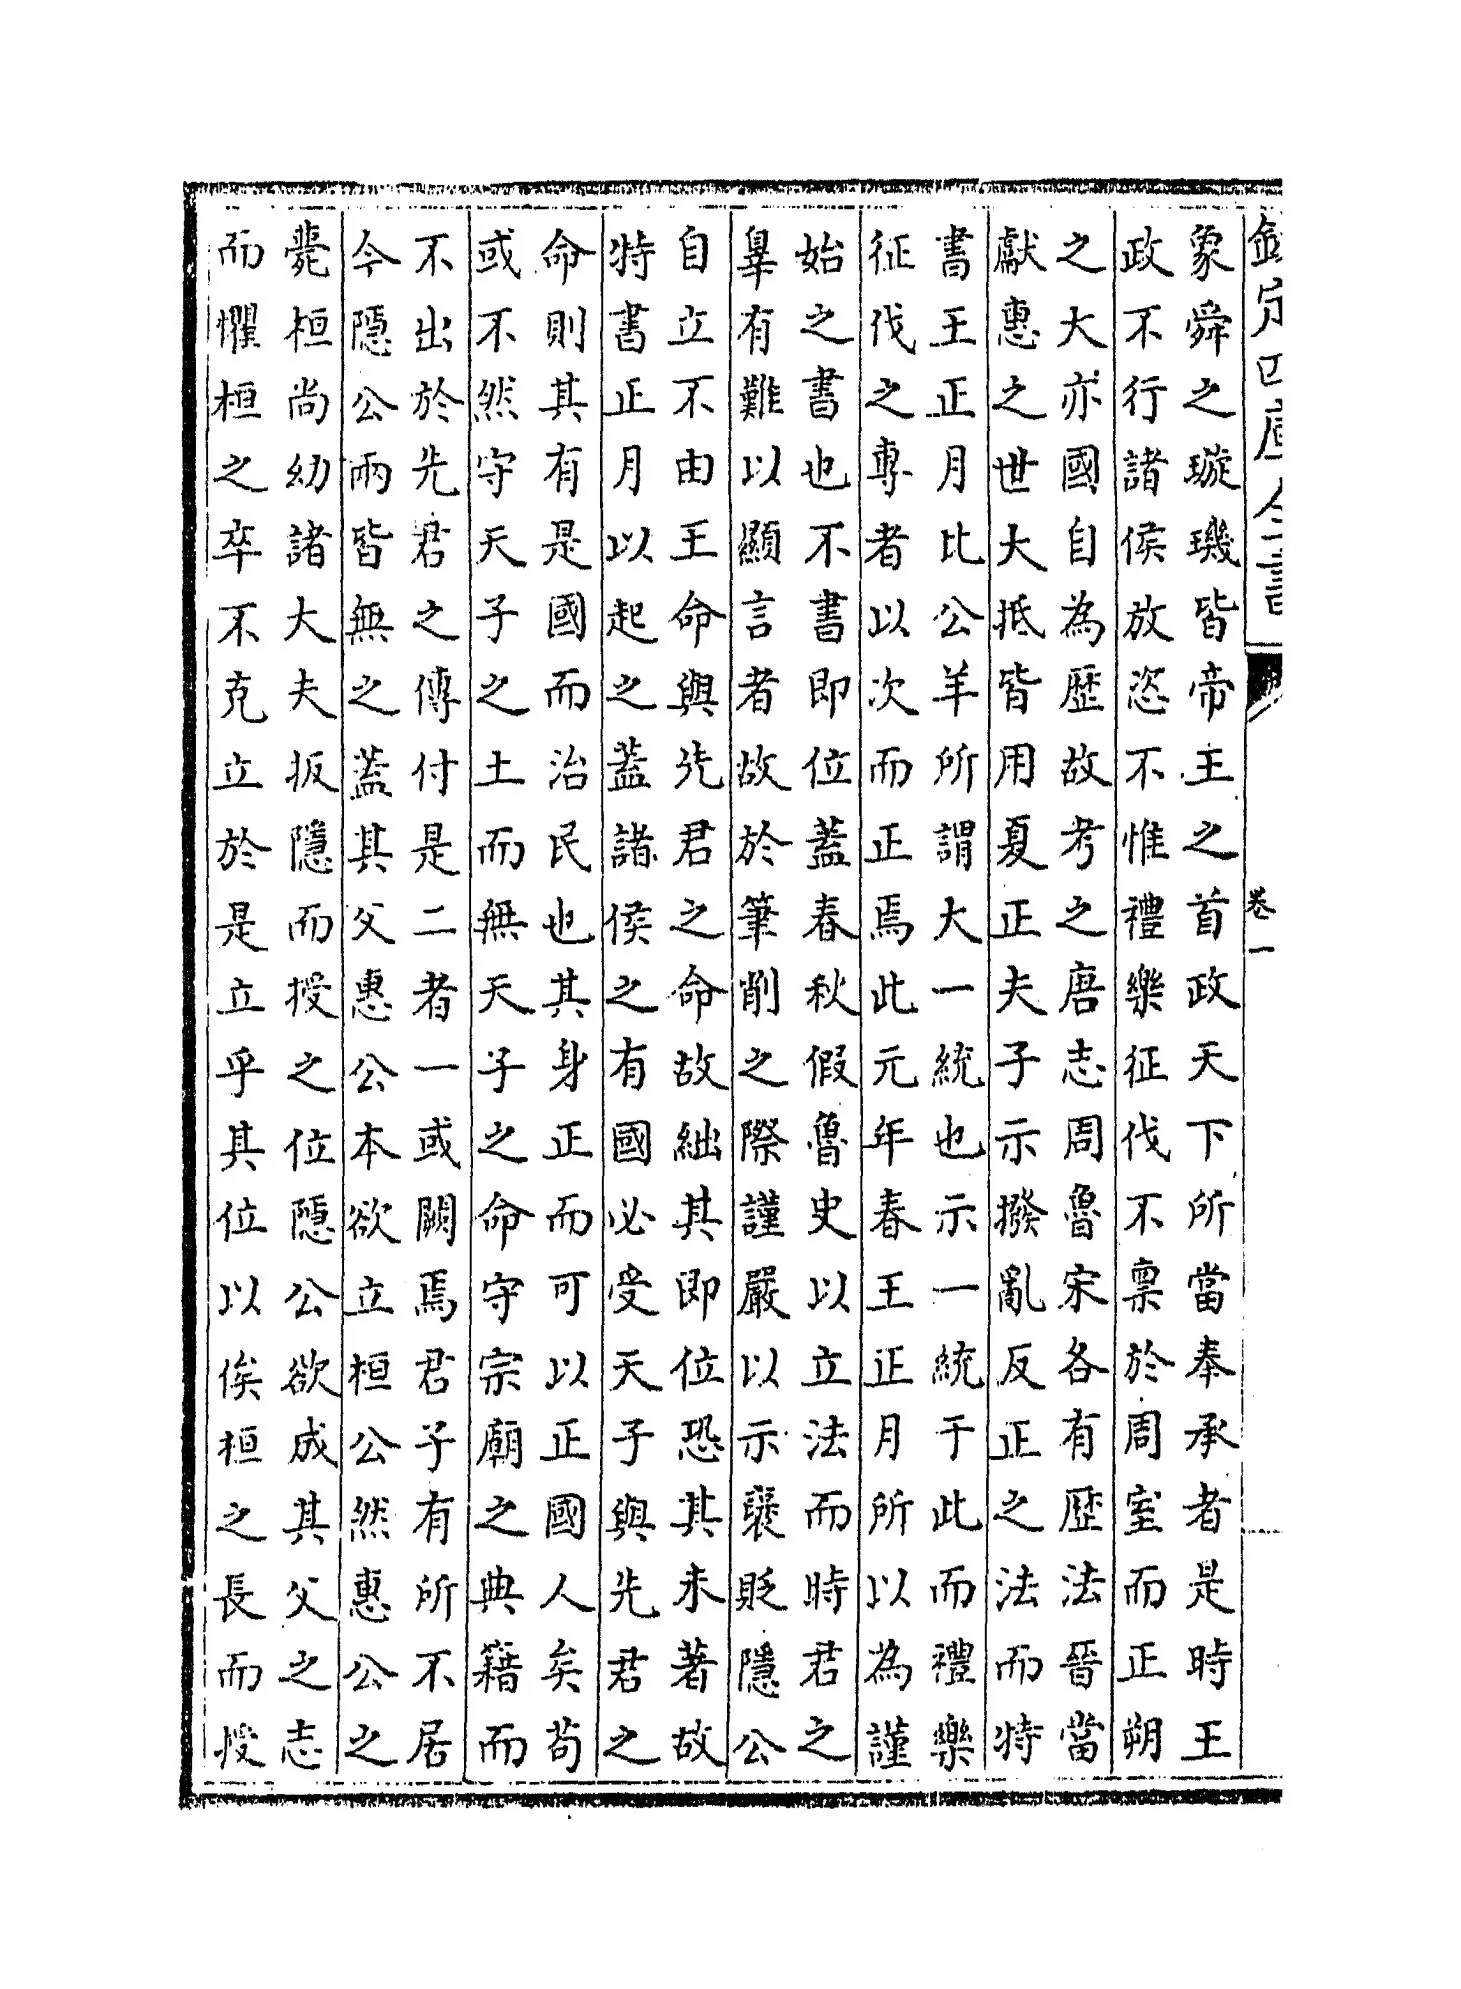 欽定四庫全書
卷一
象舜之璇璣皆帝王之首政天下所當奉承者是時王
政不行諸侯放恣不惟禮樂征伐不禀於周室而正朔
之大亦國自為歴故考之唐志周魯宋各有歴法晉當
獻惠之世大抵皆用夏正夫子示撥亂反正之法而特
書王正月比公羊所謂大一統也示一統于此而禮樂
征伐之專者以次而正焉此元年春王正月所以為謹
始之書也不書即位蓋春秋假魯史以立法而時君之
辠有難以顯言者故於筆削之際謹嚴以示褒貶隱公
自立不由王命與先君之命故絀其即位恐其未著故
特書正月以起之蓋諸侯之有國必受天子與先君之
命則其有是國而治民也其身正而可以正國人矣苟
或不然守天子之土而無天子之命守宗廟之典籍而
不出於先君之傳付是二者一或闕焉君子有所不居
今隱公兩皆無之蓋其父惠公本欲立桓公然惠公之
薨桓尚幼諸大夫扳隱而授之位隱公欲成其父之志
而懼桓之卒不克立於是立乎其位以俟桓之長而授